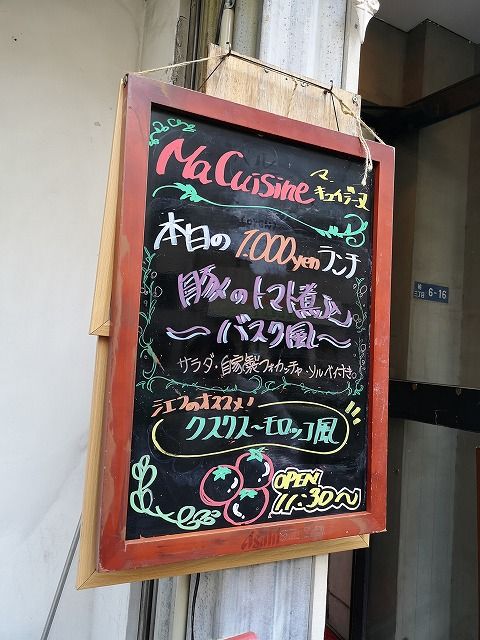 Ma Cuisine マ・キュイジーヌ
本日の 1.000yen ランチ
豚のトマト煮込
～バスク風～
サラダ・自家製フォカッチャ・ソルベ付き。
シェフのオススメ!
クスクス～モロッコ風
OPEN
11:30～
Asahi
三丁目 6-16